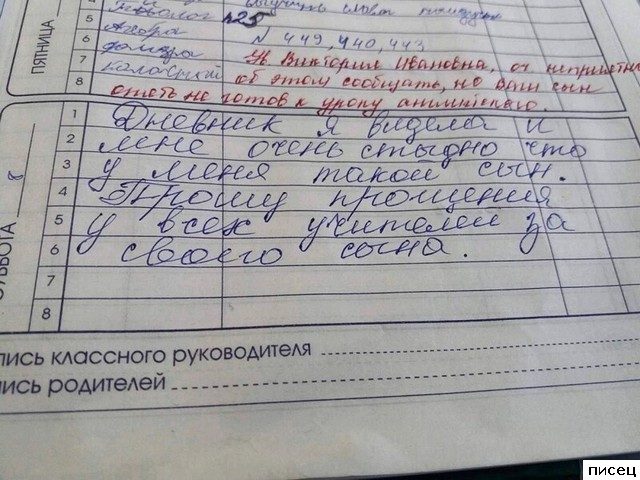 выучить слова
ПЯТНИЦА
5 алгебра
6 № 449, 440, 443
7 Ув. Виктория Ивановна, оч неприятно
8 об этом сообщать, но Ваш сын
опять не готов к уроку английского.
СУББОТА 8
1 Дневник я видела и
2 мне очень стыдно что
3 у меня такой сын.
4 Прошу прощения
5 у всех учителей за
6 своего сына.
7
8
пись классного руководителя
ись родителей
писец